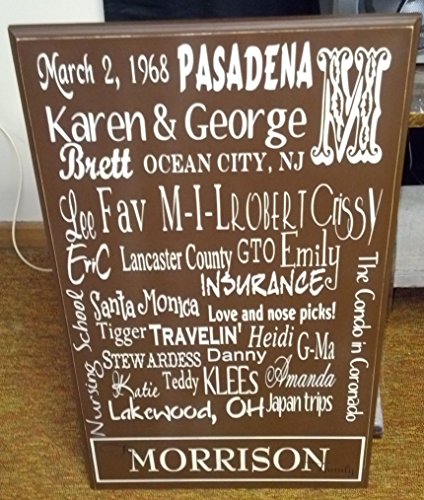 March 2, 1968 PASADENA M
Karen & George
Brett OCEAN CITY, NJ
Lee Fav M-I-L ROBERT Crissy
Eric Lancaster County GTO Emily
INSURANCE
Santa Monica Love and nose picks!
Tigger TRAVELIN' Heidi G-Ma
STEWARDESS Danny
Katie Teddy KLEES Amanda
Lakewood, OH Japan trips
Nursing School
The Condo in Coronado
The
MORRISON
Family